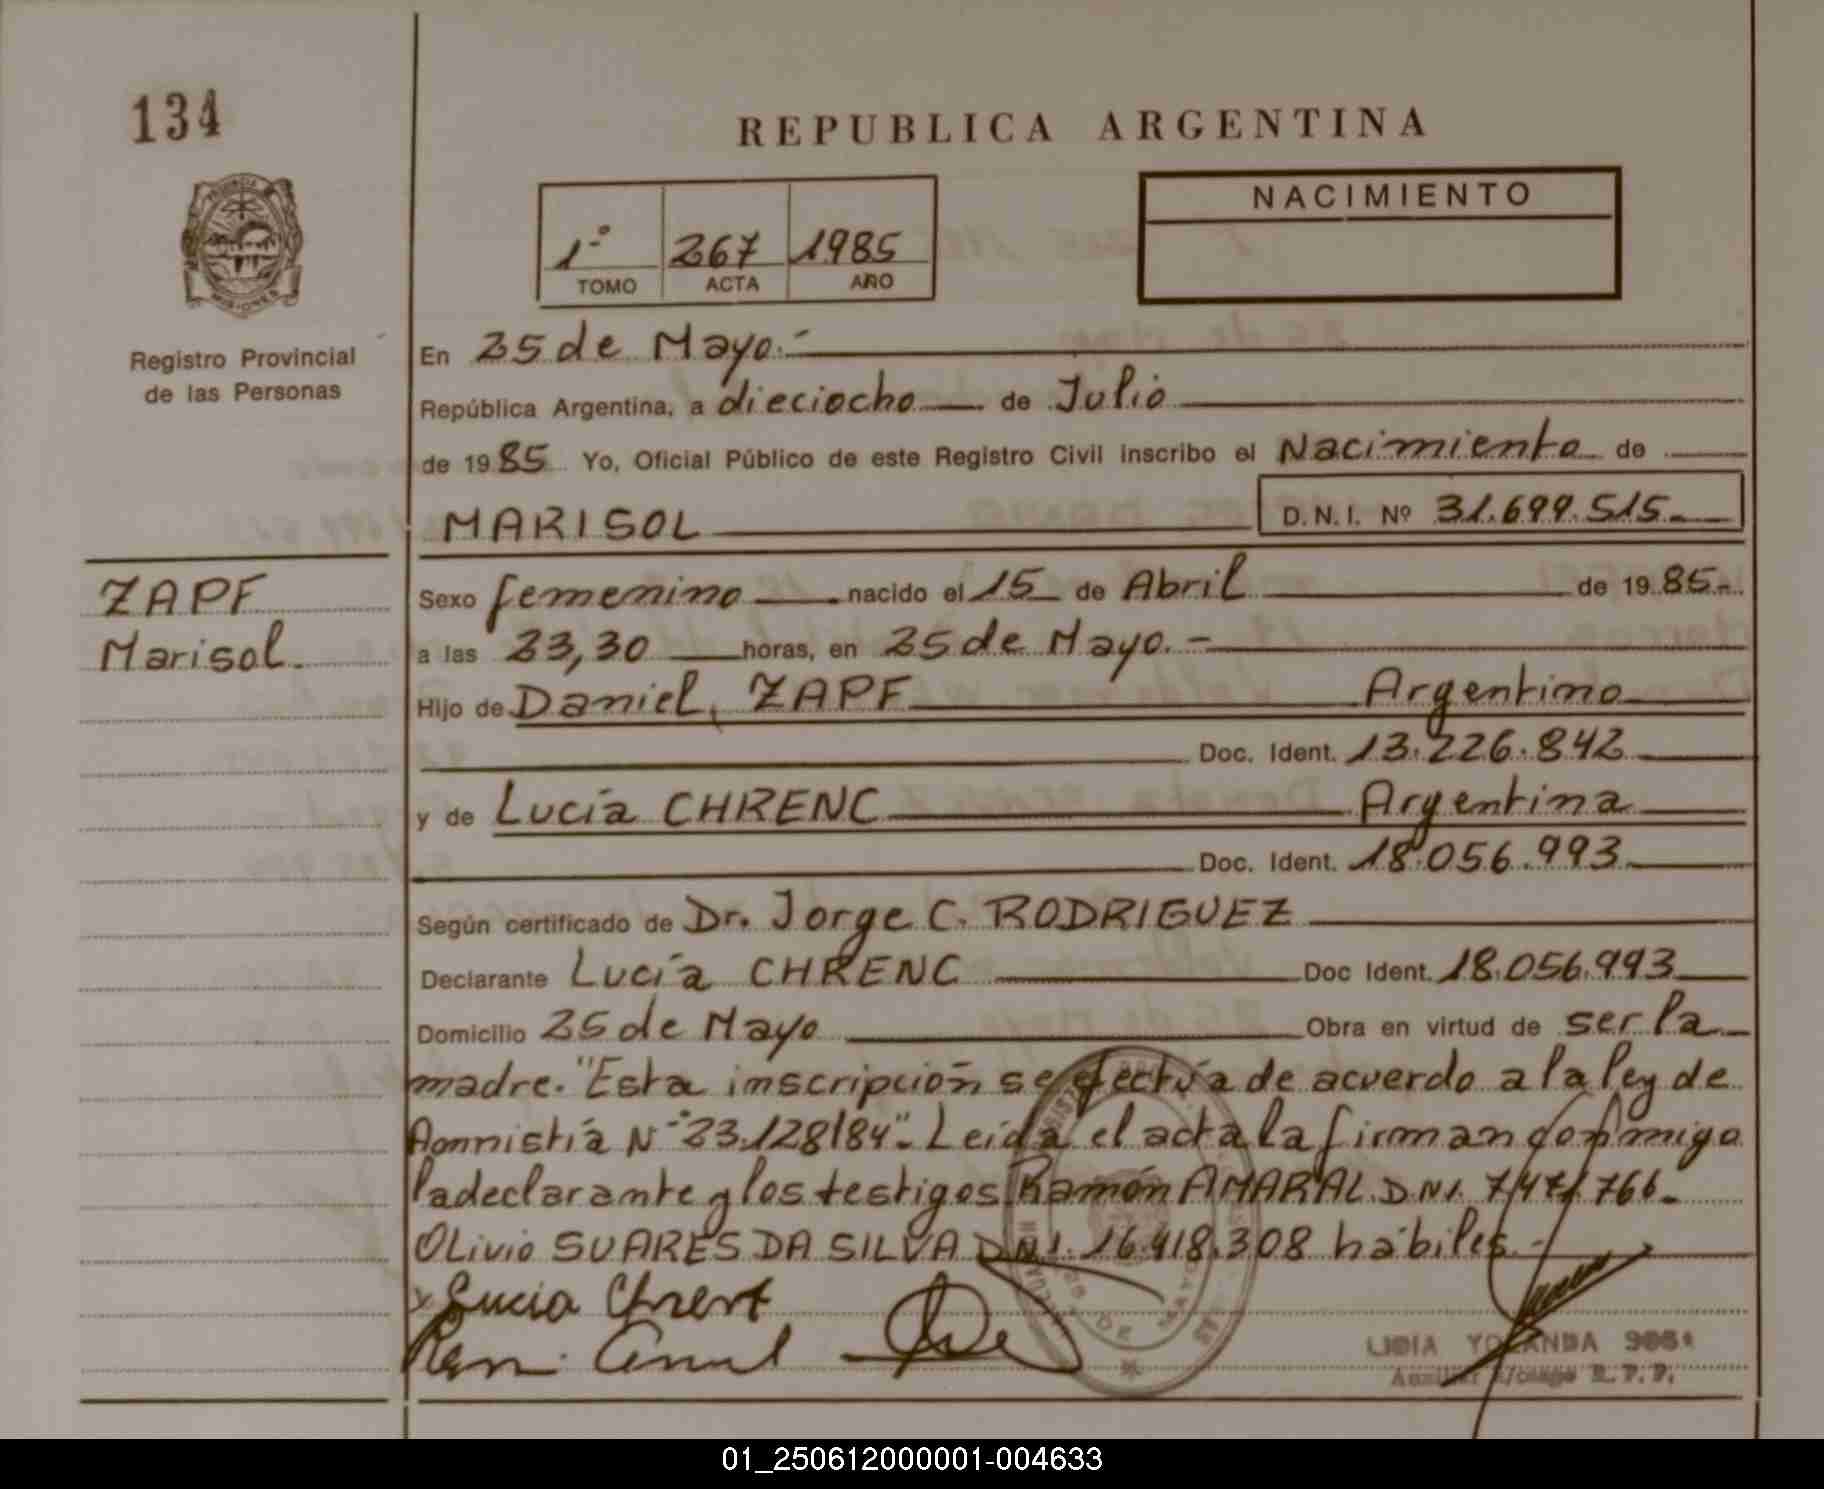 134
REPUBLICA ARGENTINA
NACIMIENTO
1º 267 1985
TOMO ACTA AÑO
PROVINCIA DE MISIONES
Registro Provincial
de las Personas
En 25 de Mayo.-
República Argentina, a dieciocho de Julio
de 1985 Yo, Oficial Público de este Registro Civil inscribo el Nacimiento de
MARISOL D.N.I. Nº 31.699.515.
ZAPF
Marisol.
Sexo femenino nacido el 15 de Abril de 1985.-
a las 23,30 horas, en 25 de Mayo.-
Hijo de Daniel, ZAPF Argentino
Doc. Ident. 13.226.842
y de Lucía CHRENC Argentina
Doc. Ident. 18.056.993
Según certificado de Dr. Jorge C. RODRIGUEZ
Declarante Lucía CHRENC Doc Ident. 18.056.993
Domicilio 25 de Mayo Obra en virtud de ser la
madre. "Esta inscripción se efectúa de acuerdo a la ley de
Amnistía Nº 23.128/84".- Leída el acta la firman conmigo
la declarante y los testigos Ramón AMARAL D.N.I. 7.471.766.
Olivio SUARES DA SILVA D.N.I. 16.418.308 hábiles.-
Lucia Chrent
LIDIA YOLANDA
Auxiliar R.P.P.
01_250612000001-004633